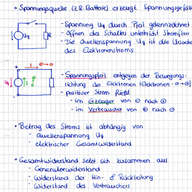 • Spannungsquelle (z.B. Batterie) erzeugt Spannungsgefälle
- Spannung U₀ durch Pfeil gekennzeichnet
- Öffnen des Schalters unterbricht Stromfluss
- Die Quellenspannung U₀ ist die Ursache
des Elektronenstroms
- Spannungspfeil entgegen der Bewegungs-
richtung der Elektronen
- positiver Strom fließt
- im Erzeuger von ⊖ nach ⊕
- im Verbraucher von ⊕ nach ⊖
• Betrag des Stroms ist abhängig von
- Quellenspannung U₀
- elektrischer Gesamtwiderstand
• Gesamtwiderstand setzt sich zusammen aus
- Generatorwiderstand
- Widerstand der Hin- & Rückleitung
- Widerstand des Verbrauchers